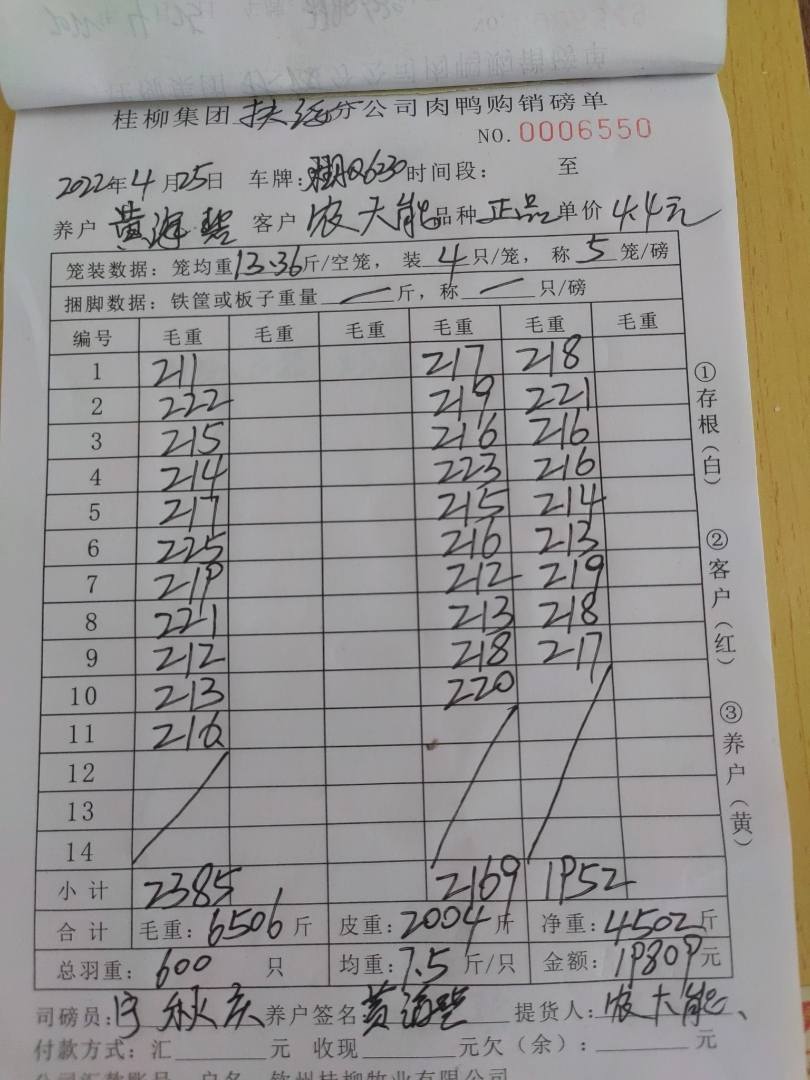 桂柳集团扶绥分公司肉鸭购销磅单
NO.0006550
2022年4月25日 车牌: Q6230 时间段: 至
养户 黄海碧 客户 农大能 品种 正品 单价 4.4元
笼装数据: 笼均重13.36斤/空笼, 装4只/笼, 称5笼/磅
捆脚数据: 铁筐或板子重量 — 斤, 称 — 只/磅
编号 毛重 毛重 毛重 毛重 毛重 毛重
1 211 217 218
2 222 219 221
3 215 216 216
4 214 223 216
5 217 215 214
6 225 216 213
7 219 212 219
8 221 213 218
9 212 218 217
10 213 220
11 216
12
13
14
小计 2385 2169 1952
合计 毛重: 6506斤 皮重: 2004斤 净重: 4502斤
总羽重: 600只 均重: 7.5斤/只 金额: 19809元
司磅员: 秋庆 养户签名 黄海碧 提货人: 农大能
付款方式: 汇 元 收现 元欠(余): 元
公司汇款账号 户名 钦州桂柳牧业有限公司
①存根(白)
②客户(红)
③养户(黄)